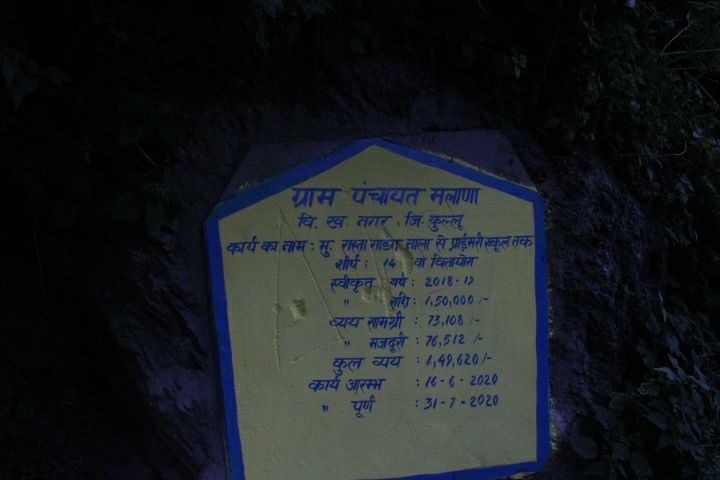 ग्राम पंचायत मलाणा
वि. ख. नगर, जि. कुल्लू
कार्य का नाम : मु. रास्ता गाडग नाला से प्राईमरी स्कूल तक
शीर्ष : 14 वां वितायोग
स्वीकृत वर्ष : 2018-19
" राशि : 1,50,000/-
व्यय सामग्री : 73,108/-
" मजदूरी : 76,512/-
कुल व्यय : 1,49,620/-
कार्य आरम्भ : 16-6-2020
" पूर्ण : 31-7-2020